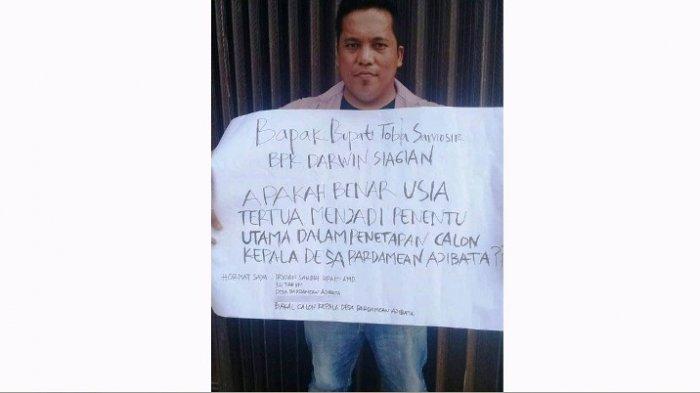 Bapak Bupati Toba Samosir
BPK DARWIN SIAGIAN
APAKAH BENAR USIA
TERTUA MENJADI PENENTU
UTAMA DALAM PENETAPAN CALON
KEPALA DESA PARDAMEAN AJIBATA??
HORMAT SAYA
DESA PARDAMEAN AJIBATA
BAKAL CALON KEPALA DESA PARDAMEAN AJIBATA